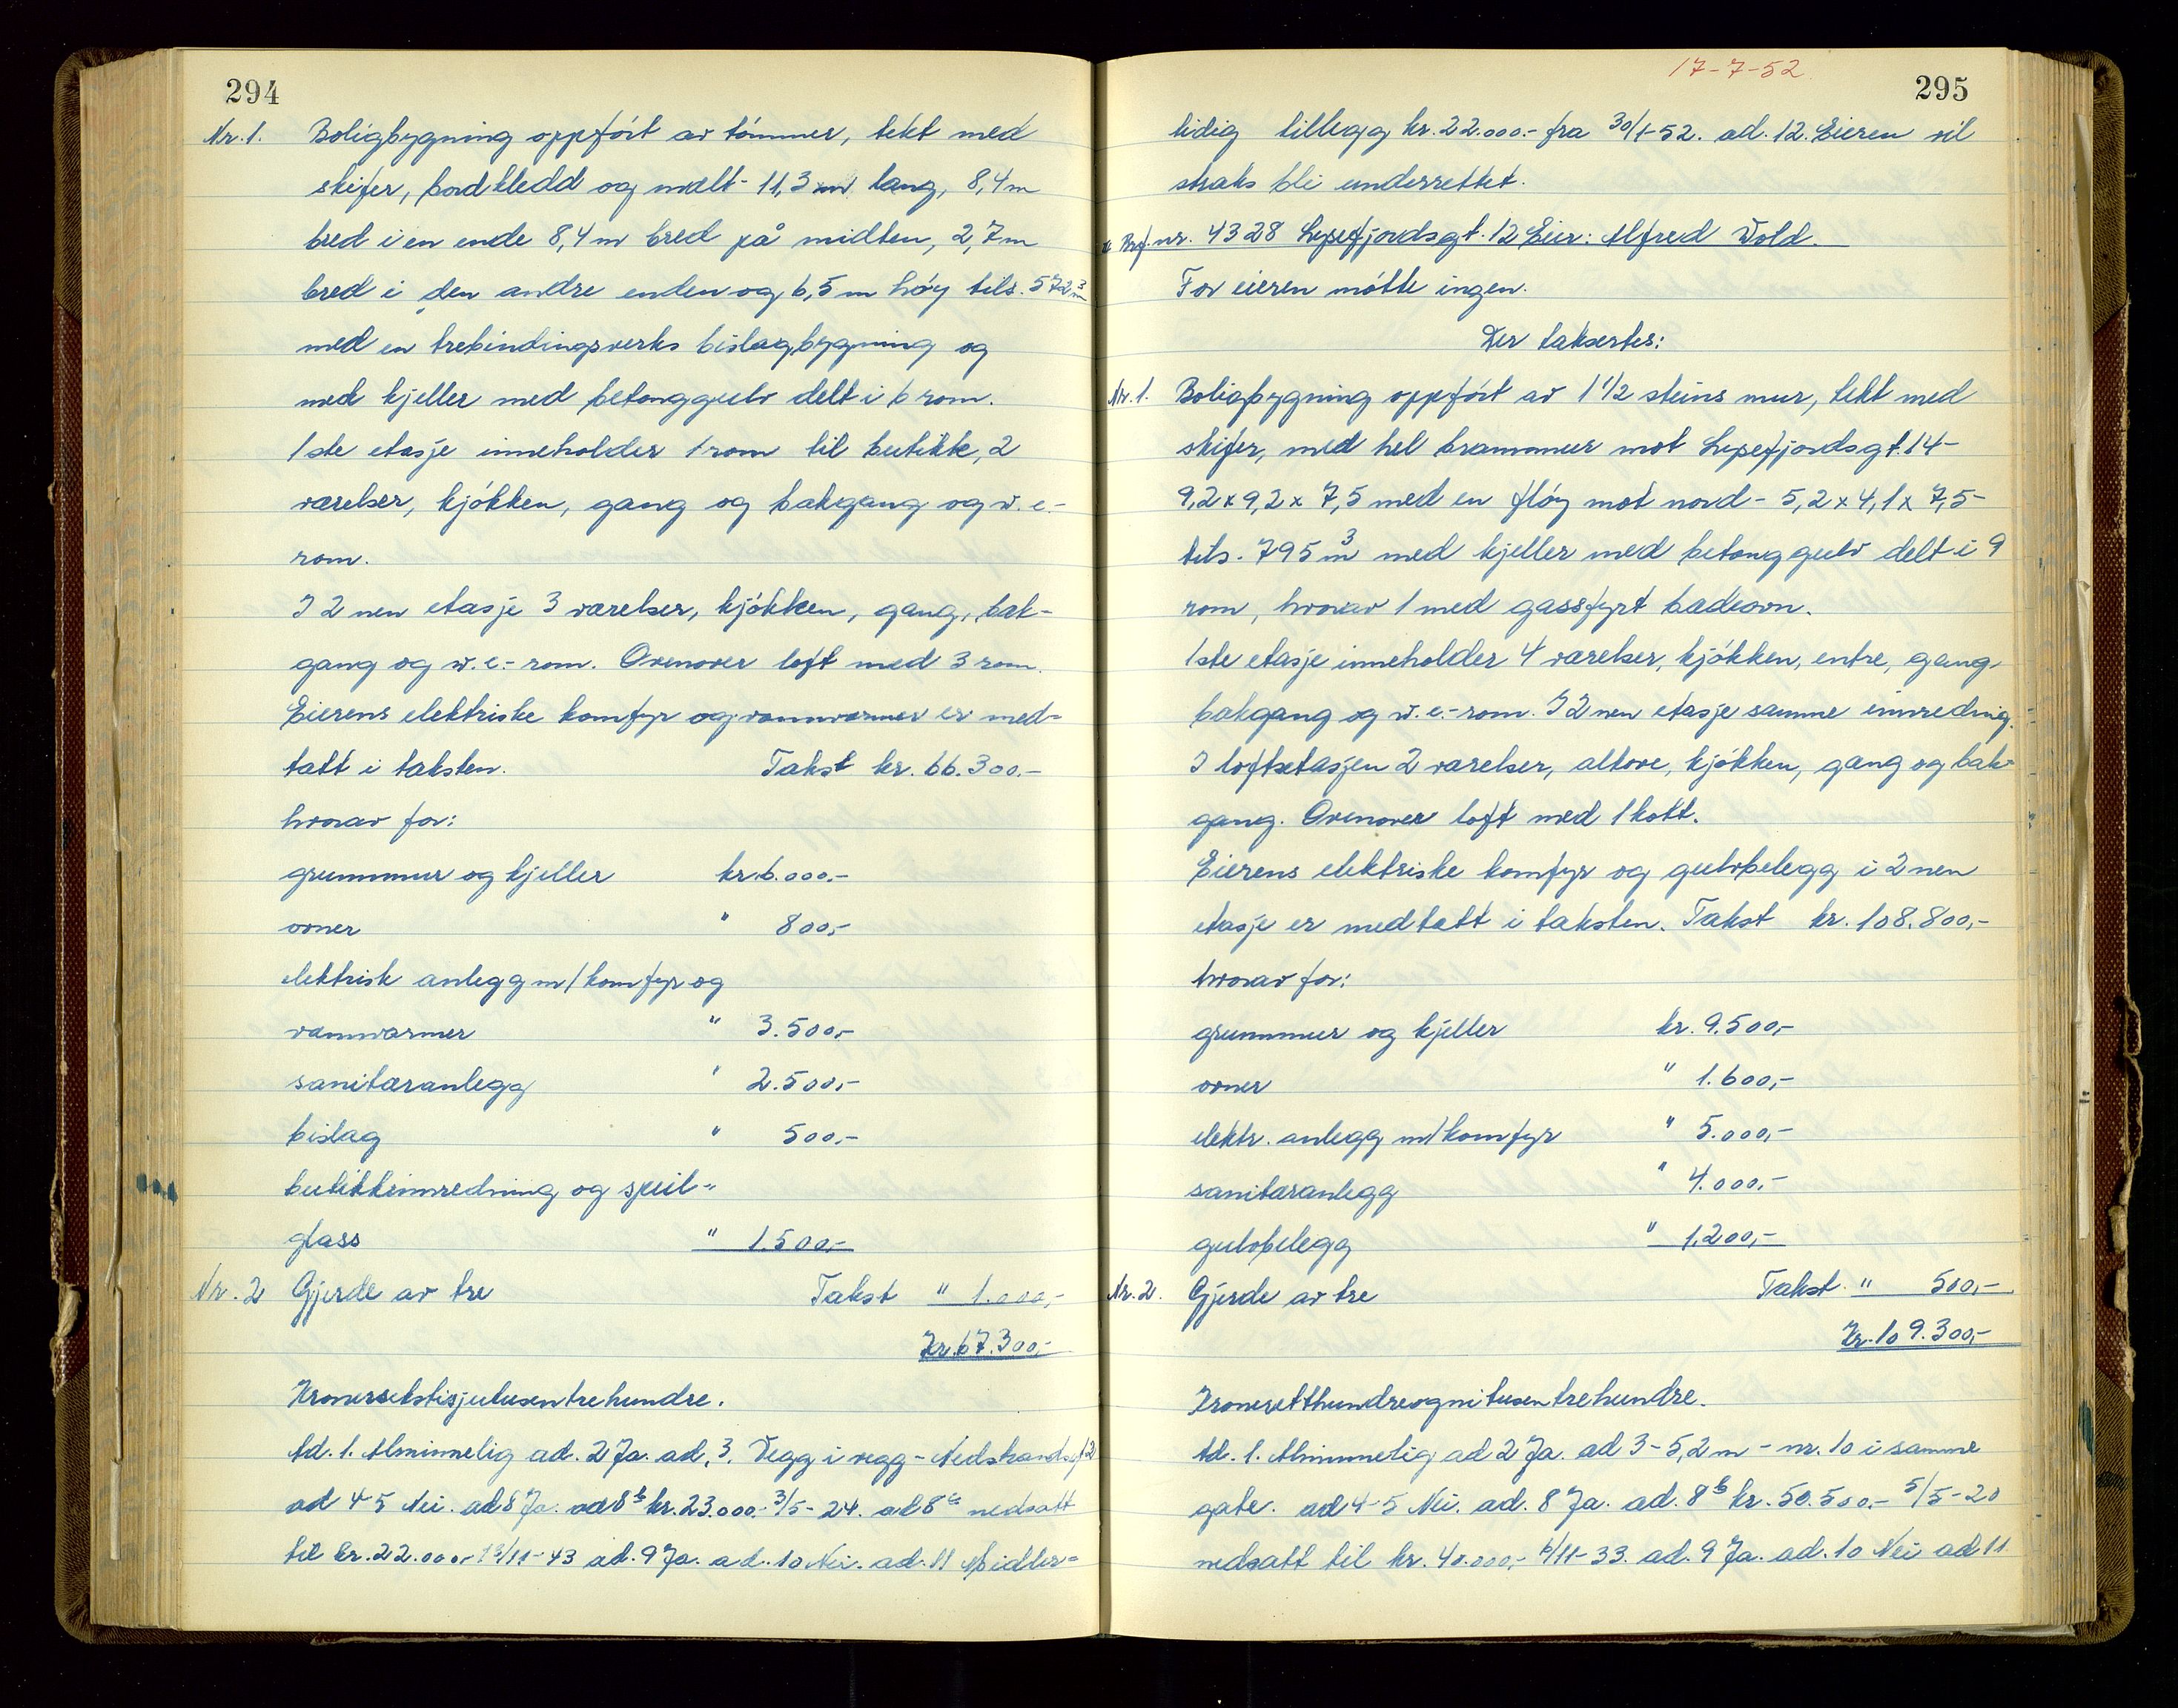 294
Nr. 1. Boligbygning oppført av tømmer, tekt med
skifer, bordkledd og malt - 11,3 m lang, 8,4 m
bred i en ende 8,4 m bred på midten, 2,7 m
bred i den andre enden og 6,5 m høy tils. 572 m³
med en trebindingsverks bislagbygning og
med kjeller med betonggulv delt i 6 rom.
1ste etasje inneholder 1 rom til butikk, 2
værelser, kjøkken, gang og bakgang og w.c.-
rom.
I 2nen etasje 3 værelser, kjøkken, gang, bak-
gang og w.c.-rom. Ovenover loft med 3 rom.
Eierens elektriske komfyr og vannvarmer er med-
tatt i taksten. Takst kr. 66.300.-
hvorav for:
grunnmur og kjeller kr. 6.000.-
ovner " 800,-
elektrisk anlegg m/komfyr og
vannvarmer " 3.500,-
sanitæranlegg " 2.500,-
bislag " 500,-
butikkinnredning og speil-
glass " 1.500,-
Nr. 2 Gjerde av tre Takst " 1.000,-
Kr. 67.300,-
Kronersekstisjutusentrehundre.
Ad. 1. Alminnelig ad. 2 Ja. ad. 3. Vegg i vegg - Nedstrandsgt 2
ad 4-5 Nei. ad 8 Ja. ad 8ᵇ kr. 23.000.- 3/5-24. ad 8ᶜ nedsatt
til kr. 22.000,- /11-43 ad. 9 Ja. ad. 10 Nei. ad. 11 Midler-
17-7-52.
295
tidig tillegg kr. 22.000.- fra 30/1-52. ad. 12. Eieren vil
straks bli underrettet.
Brf. nr. 4328 Lysefjordsgt. 12 Eier: Alfred Vold.
For eieren møtte ingen.
Der taksertes:
Nr. 1. Boligbygning oppført av 1 1/2 steins mur, tekt med
skifer, med hel brannmur mot Lysefjordsgt. 14 -
9,2 x 9,2 x 7,5 med en fløy mot nord - 5,2 x 4,1 x 7,5 -
tils. 795 m³ med kjeller med betonggulv delt i 9
rom, hvorav 1 med gassfyrt badeovn.
1ste etasje inneholder 4 værelser, kjøkken, entre, gang,
bakgang og w.c.-rom. I 2nen etasje samme innredning.
I loftsetasjen 2 værelser, alkove, kjøkken, gang og bak-
gang. Ovenover loft med 1 kott.
Eierens elektriske komfyr og gulvbelegg i 2nen
etasje er medtatt i taksten. Takst kr. 108.800,-
hvorav for:
grunnmur og kjeller kr. 9.500,-
ovner " 1.600,-
elektr. anlegg m/komfyr " 5.000,-
sanitæranlegg " 4.000,-
gulvbelegg " 1.200,-
Nr. 2. Gjerde av tre Takst " 500,-
Kr. 109.300,-
Kroneretthundreognitusentrehundre.
Ad. 1. Alminnelig ad 2 Ja. ad 3 - 5,2 m - nr. 10 i samme
gate. ad 4-5 Nei. ad. 8 Ja. ad. 8ᵇ kr. 50.500.- 5/5-20
nedsatt til kr. 40.000,- 6/11-33. ad. 9 Ja. ad. 10 Nei ad 11